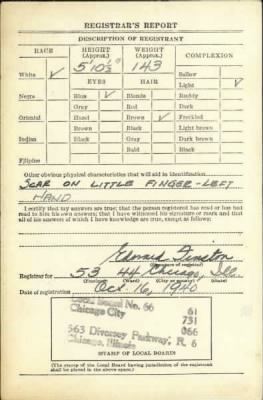 REGISTRAR'S REPORT
DESCRIPTION OF REGISTRANT
RACE HEIGHT (Approx.) WEIGHT (Approx.) COMPLEXION
5'10½" 143
White ✓ EYES HAIR Sallow
Light ✓
Negro Blue ✓ Blonde Ruddy
Gray Red Dark
Oriental Hazel Brown ✓ Freckled
Brown Black Light brown
Indian Black Gray Dark brown
Bald Black
Filipino
Other obvious physical characteristics that will aid in identification
SCAR ON LITTLE FINGER-LEFT
HAND
I certify that my answers are true; that the person registered has read or has had
read to him his own answers; that I have witnessed his signature or mark and that
all of his answers of which I have knowledge are true, except as follows:
Edward
(Signature of registrar)
Registrar for 53 44 Chicago, Ill.
(Precinct) (Ward) (City or county) (State)
Date of registration Oct. 16, 1940
Local Board No. 66 61
Chicago City 731
066
563 Diversey Parkway, R. 6
Chicago, Illinois
STAMP OF LOCAL BOARD
(The stamp of the Local Board having jurisdiction of the registrant
shall be placed in the above space.)